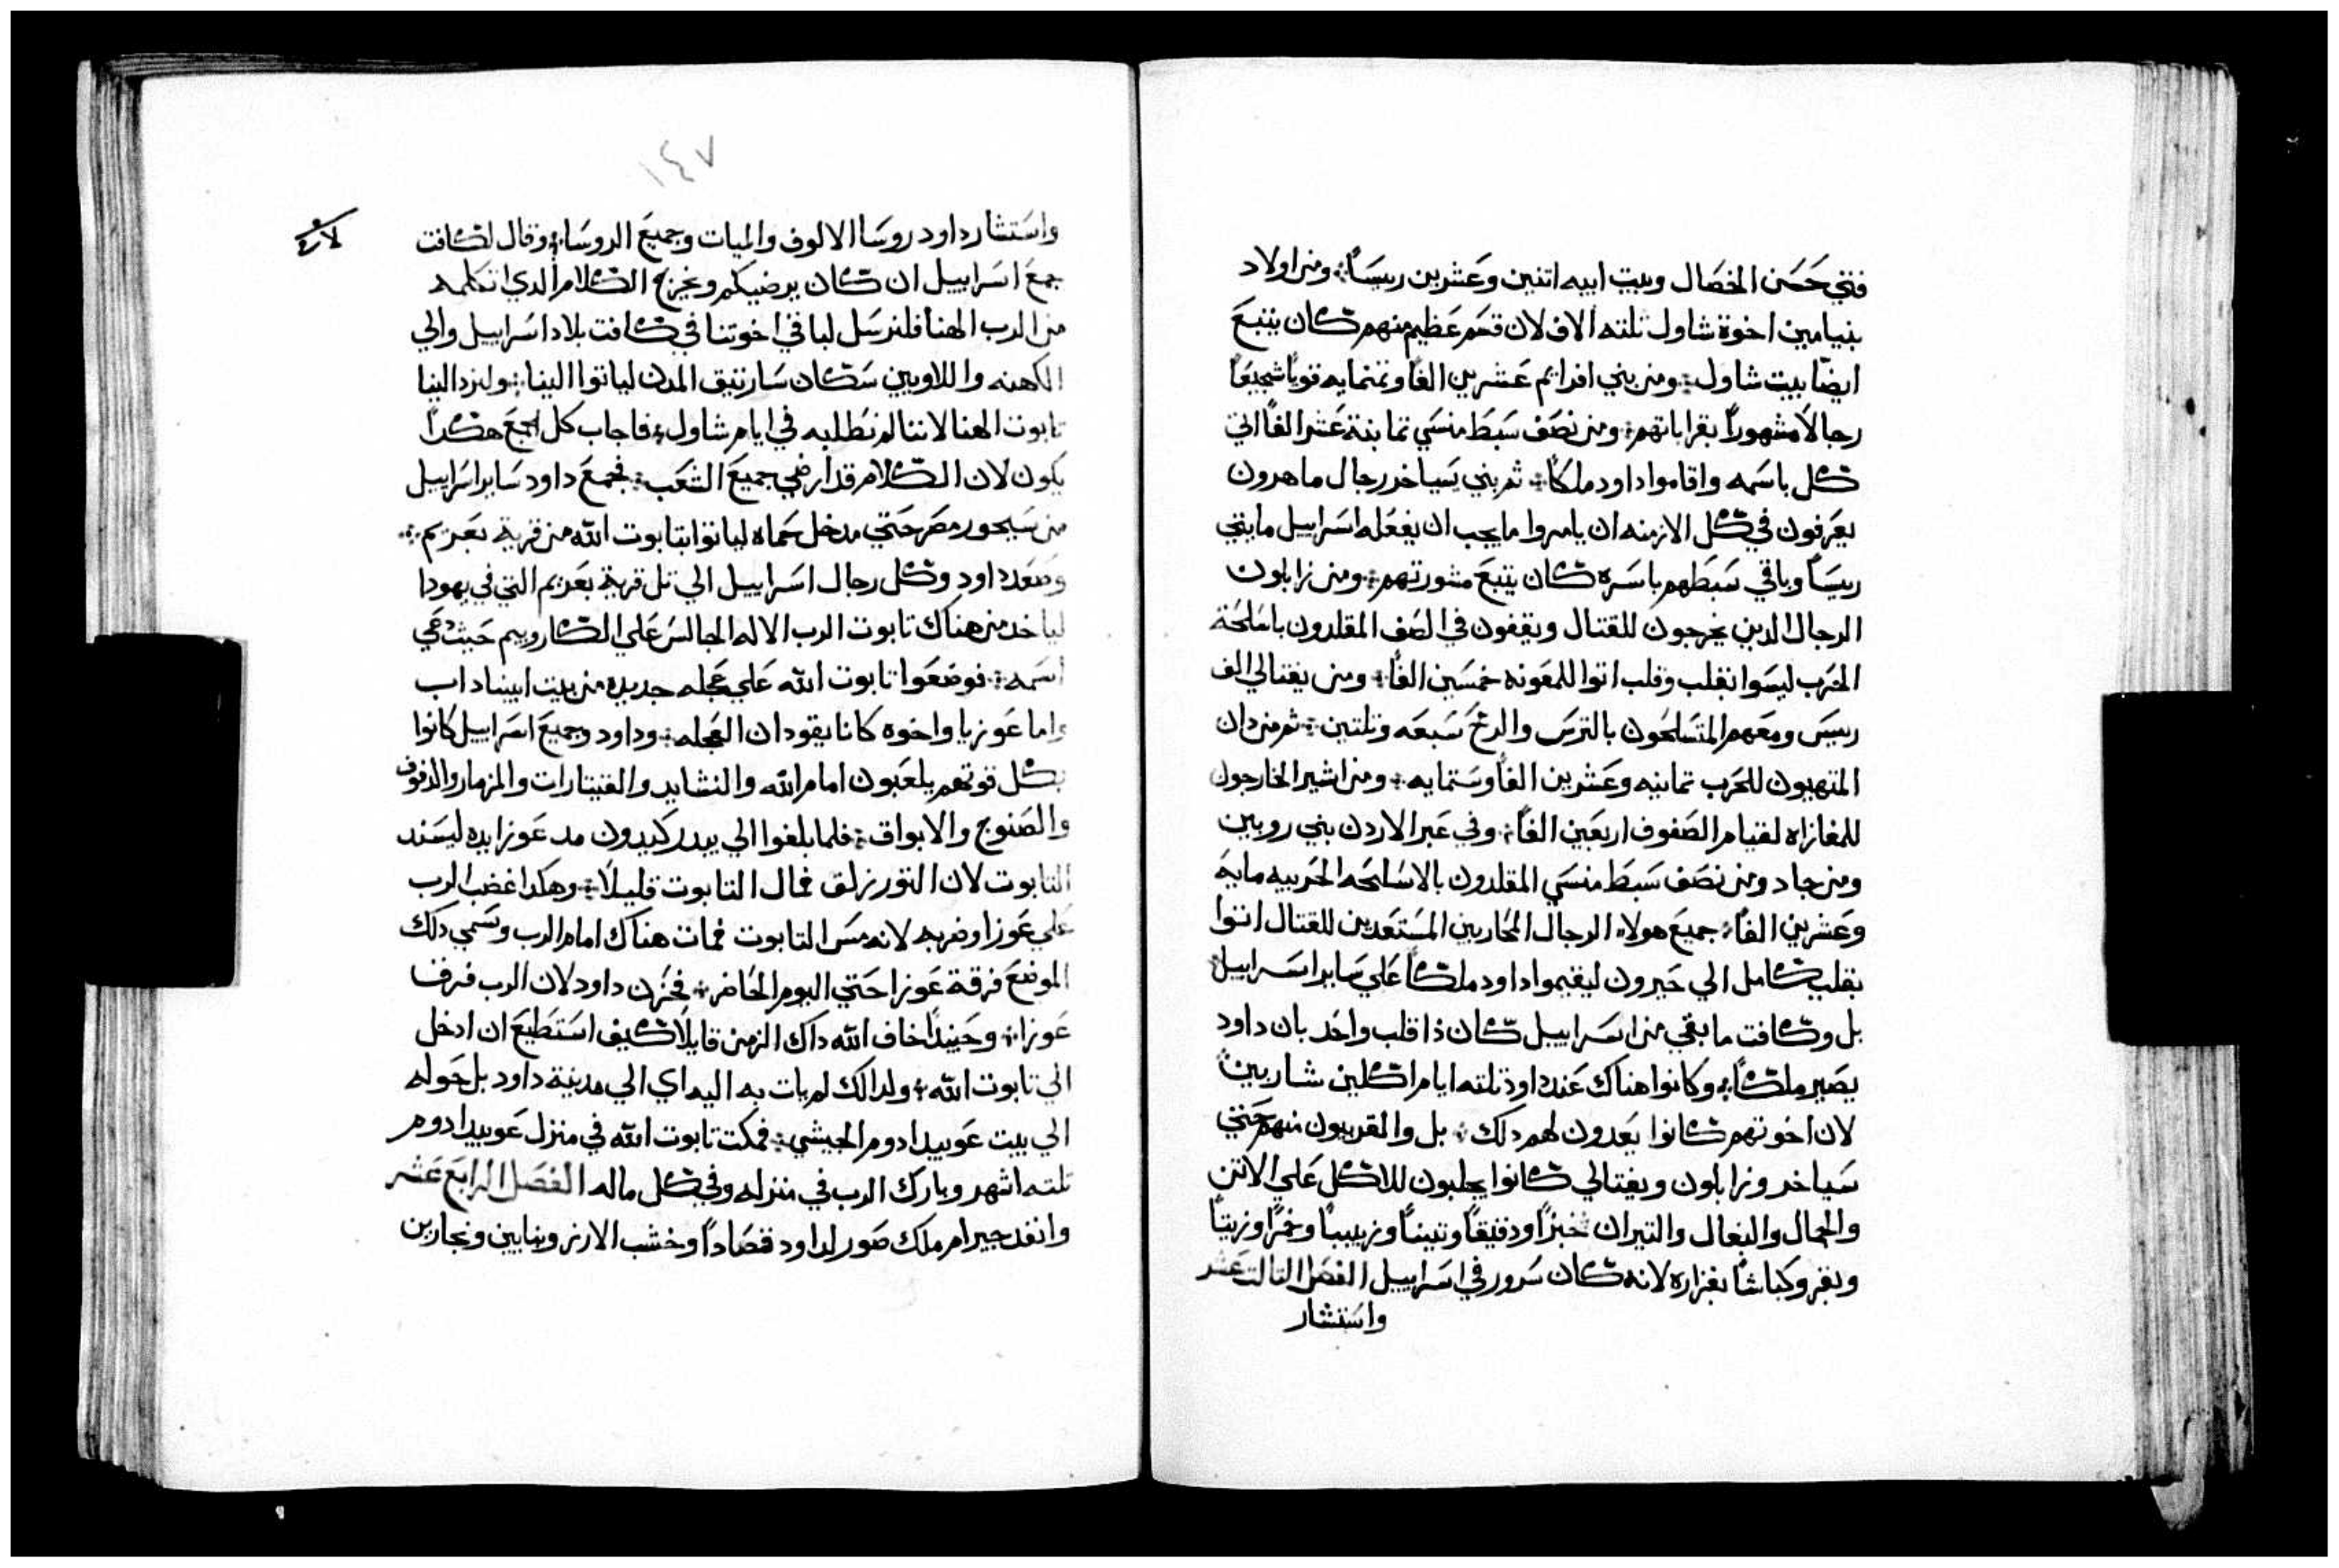 فتي حَسَن الخصَال وبيت ابيه اتنين وعَشرين ريسَاً ومن اولاد
بنيامين اخوة شاول تلته الاف لان قسَم عَظيم منهم كان يتبعَ
ايضًا بيت شاول ومن بني افرايم عَشرين الفاً وتمنمايه قوياً شجيعَاً
رجالاً مشهوراً بقراباتهم ومن نصَف سَبط منسَي تمانية عَشر الفاً اتي
كل باسَمه واقاموا داود ملكاً ثم بني يسَياخر رجال ماهرون
يعَرفون في كل الازمنه ان يامروا ما يجب ان يفعَله اسَراييل مايتي
ريسَاً وباقي سَبَطهم باسَره كان يتبعَ مشورتهم ومن زابلون
الرجال الدين يخرجون للقتال ويقفون في الصَف المقلدون باسَلحَة
الحَرب ليسَوا بقلب وقلب اتوا للمعَونه خمسَين الفاً ومن يفتالي الف
رييسَ ومعَهم المتسَلحَون بالترسَ والرمحَ سَبعَه وتلتين ثم من دان
المتهيون للحَرب تمانيه وعَشرين الفاً وسَتمايه ومن اشير الخارجون
للمغازاه لقيام الصَفوف اربعَين الفاً وفي عَبر الاردن بني روبين
ومن جاد ومن نصَف سَبَط منسَي المقلدون بالاسَلحَه الحَربيه مايه
وعَشرين الفاً جميعَ هولاء الرجال المحَاربين المسَتعَدين للقتال اتوا
بقلب كامل الي حَبرون ليقيموا داود ملكاً عَلي سَاير اسَراييل
بل وكافت ما بقي من اسَراييل كان ذا قلب واحَد بان داود
يصَير ملكاً وكانوا هناك عَند داود تلته ايام اكلين شاربين
لان اخوتهم كانوا يعَدون لهم دلك بل والقريبون منهم حَتي
سَياخر وزابلون ويفتالي كانوا يجلبون للاكل عَلي الاتن
والجمال والبغال والتيران خبزاً ودقيقاً وتيناً وزبيباً وخمراً وزيتاً
وبقر وكباشاً بغزاره لانه كان سَرور في اسَراييل الفصَل التالت عَشر
واسَتشار
١٤٧
واسَتشار داود روسَا الالوف والميات وجميعَ الروسَا وقال لكافت
جمعَ اسَراييل ان كان يرضيكم ويخرج الكلام الدي اتكلمه
من الرب الهنا فلنرسَل لباقي اخوتنا في كافت بلاد اسَراييل والي
الكهنه واللاويين سَكان سَارتيق المدن لياتوا الينا ولنرد الينا
تابوت الهنا لاننا لم نطلبه في ايام شاول فاجاب كل الجمعَ هكدا
يكون لان الكلام قد ارضي جميعَ الشعَب فجمعَ داود سَاير اسَراييل
من سَيحور مصَر حَتي مدخل حَماه لياتوا بتابوت الله من قرية يعَريم
وصَعَد داود وكل رجال اسَراييل الي تل قرية يعَريم التي في يهودا
لياخد من هناك تابوت الرب الاله الجالسَ عَلي الكاروبيم حَيث دعَي
اسَمه فوضعَوا تابوت الله عَلي عَجله جديده من بيت ابيناداب
واما عَوزيا واخوه كانا يقودان العَجله وداود وجميعَ اسَراييل كانوا
بكل قوتهم يلعَبون امام الله والنشايد والقيتارات والمزمار والدفوف
والصَنوج والابواق فلما بلغوا الي بيدر كيدون مد عَوزا يده ليسَند
التابوت لان التور زلق فمال التابوت قليلاً وهكدا غضب الرب
عَلي عَوزا وضربه لانه مسَ التابوت فمات هناك امام الرب وسَمي دلك
الموضعَ فرقة عَوزا حَتي اليوم الحَاضر فحَزن داود لان الرب فرق
عَوزا وحَينداً خاف الله داك الزمن قايلاً كيف اسَتطيعَ ان ادخل
الي تابوت الله ولدالك لم يات به اليه اي الي مدينة داود بل حَوله
الي بيت عَوبيد ادوم الجيشي فمكت تابوت الله في منزل عَوبيد ادوم
تلته اشهر وبارك الرب في منزله وفي كل ماله الفصَل الرابعَ عَشر
وانفد حيرام ملك صَور لداود قصَاداً وخشب الارز وبنايين ونجارين